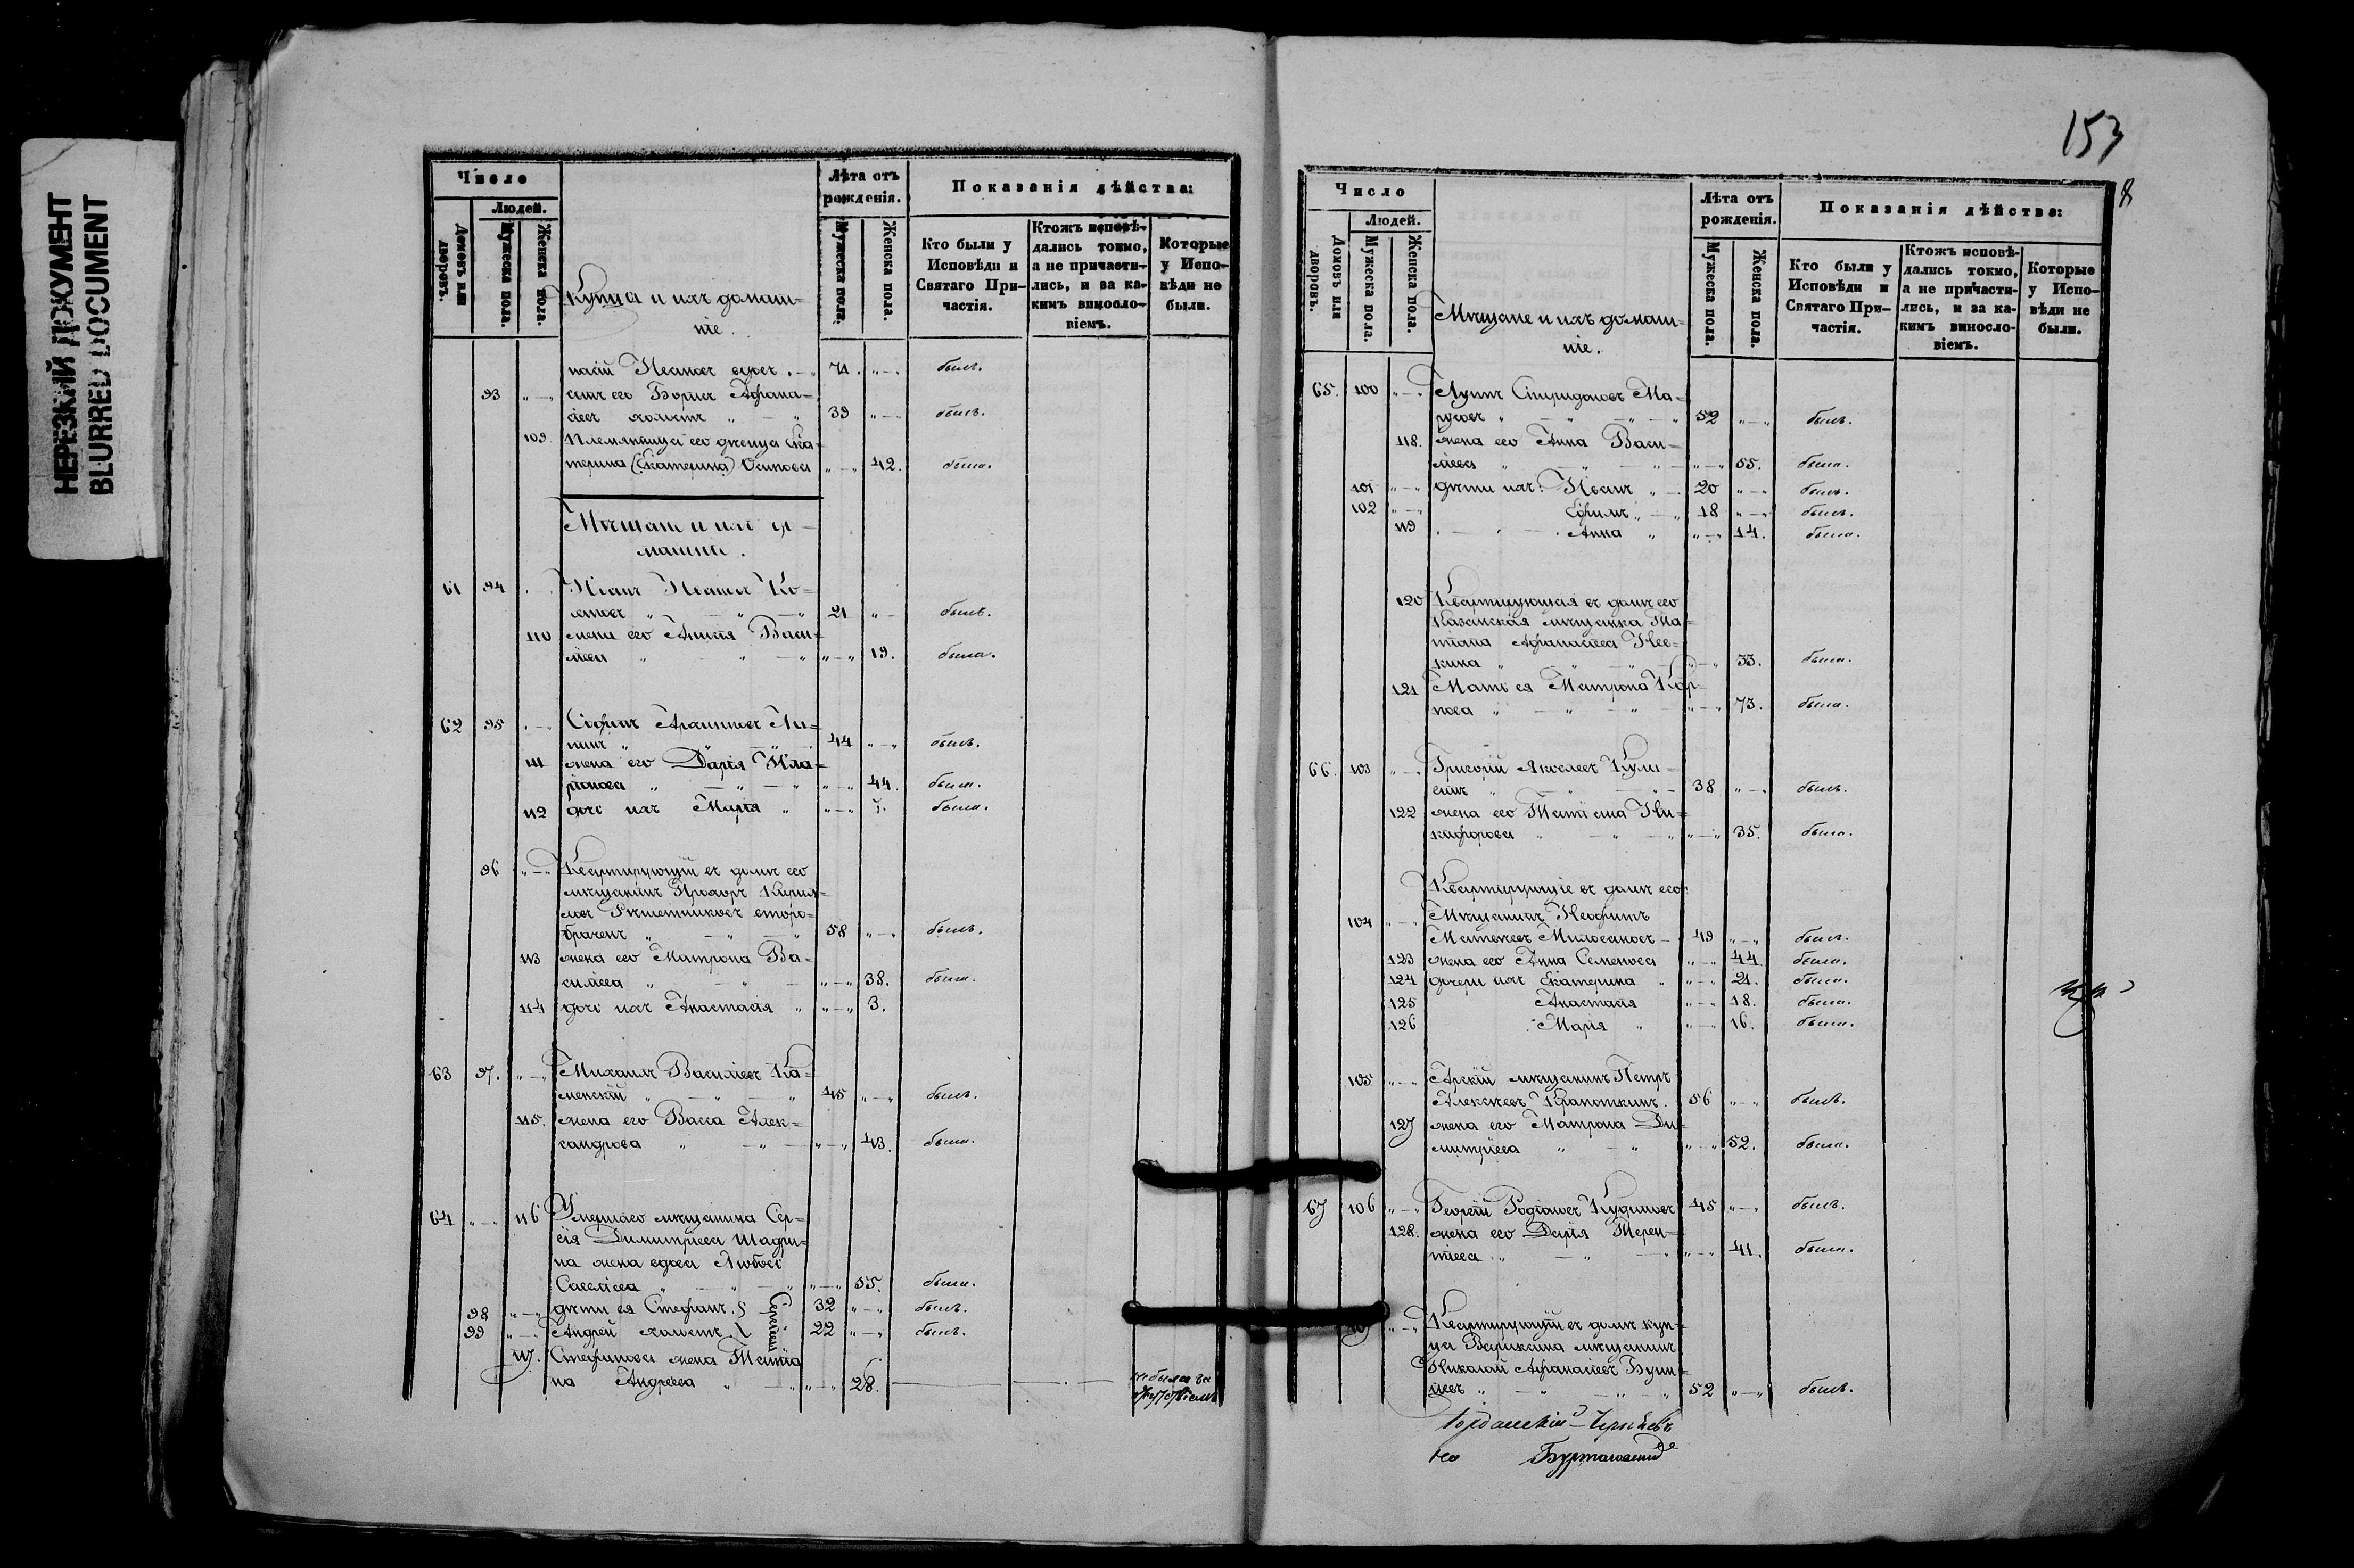 НЕРЕЗКИЙ ДОКУМЕНТ
BLURRED DOCUMENT
Число
Людей.
Домовъ или дворовъ.
Мужеска пола.
Женска пола.
Купцы и ихъ домаш=
ніе.
Лѣта отъ рожденія.
Мужеска пола.
Женска пола.
Показанія дѣйства:
Кто были у Исповѣди и Святаго При-частія.
Ктожъ исповѣ-дались токмо, а не причасти-лись, и за ка-кимъ винослo-віемъ.
Которые у Испо-вѣди не были.
насій Ивановъ вдовъ 71. былъ.
93 сынъ его Борисъ Афана=
сіевъ холостъ 39 былъ.
109. Племянница его дѣвица Ека=
терина (Екатерина) Осипова 42. была.
Мѣщане и ихъ до=
машніе.
61 94 Иванъ Ивановъ Ко=
21 былъ.
110 жена его Васи=
лiева 19. была.
62 95 44 былъ.
111 жена его Дарія Ила=
ріонова 44. была.
112 дочь ихъ Марія была.
96 Квартирующій въ домѣ его
мѣщанинъ Прохоръ Кирил=
ловъ Рѣшетниковъ второ=
браченъ 58 былъ.
113 жена его Матрона Ва=
силіева 38. была.
114 дочь ихъ Анастасія 3.
63 97. Михаилъ Василіевъ Ка=
менскій 45 былъ.
115. жена его Васса Алек=
сандрова 43. была.
64 116 Умершаго мѣщанина Сер=
гія Димитріева Шадри=
на жена вдова Любовь
Савеліева 55. была.
98 дѣти ея Стефанъ Сергѣевы 32 былъ.
99 Андрей холостъ 22 былъ.
117. Стефанова жена Татіа
на Андреева 28. не была за
153
8
Число
Людей.
Домовъ или дворовъ.
Мужеска пола.
Женска пола.
Мѣщане и ихъ домаш=
ніе.
Лѣта отъ рожденія.
Мужеска пола.
Женска пола.
Показанія дѣйства:
Кто были у Исповѣди и Святаго При-частія.
Ктожъ исповѣ-дались токмо, а не причасти-лись, и за ка-кимъ винослo-віемъ.
Которые у Испо-вѣди не были.
65. 100 Лупъ Спиридоновъ Ма=
52 былъ.
118. жена его Анна Васи=
ліева 55. была.
101 дѣти ихъ: Иванъ 20 былъ.
102 Ефимъ 18 былъ.
119 Анна 14. была.
120 Квартирующая въ домѣ его
Казанская мѣщанка Та=
тіана Афанасіева Нев=
кина 33. была.
121 Мать ея Матрона Кар=
пова 73. была.
66. 103 Григорій Яковлевъ Кули=
38 былъ.
122 жена его Татіана Ни=
кифорова 35. была.
Квартирующіе въ домѣ его:
104 Мѣщанинъ Неофитъ
Матвѣевъ Миловановъ 49 былъ.
123 жена его Анна Семенова 44. была.
124 дочери ихъ Екатерина 21. была.
125 Анастасія 18. была.
126 Марія 16. была.
105 Арскій мѣщанинъ Петръ
Алексѣевъ Крапоткинъ. 56 былъ.
127 жена его Матрона Ди=
митріева 52. была.
67 106 Георгій Родіоновъ Кудиновъ 45 былъ.
128. жена его Дарія Терен=
тіева 41. была.
Квартирующій въ домѣ куп=
ца мѣщанинъ
Николай Афанасіевъ
52 былъ.